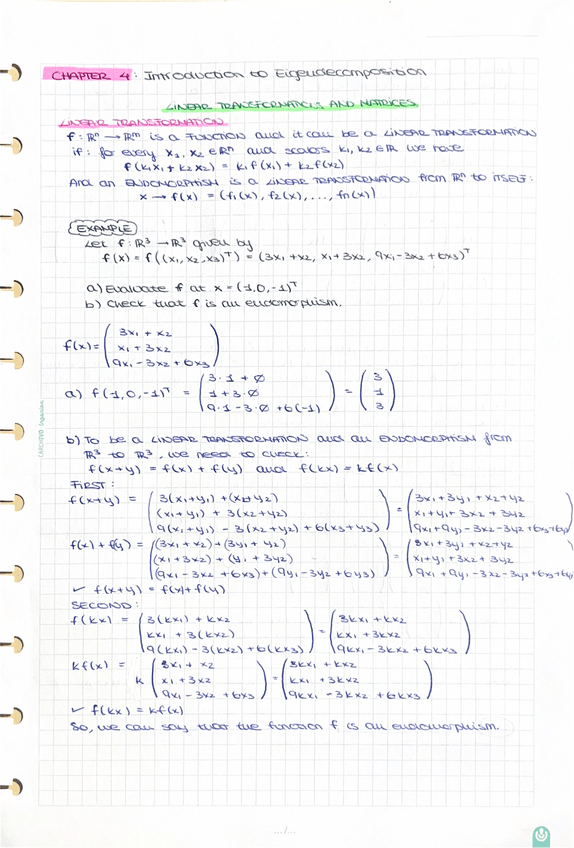 CHAPTER 4: Introduction to Eigendecomposition
LINEAR TRANSFORMATIONS AND MATRICES
LINEAR TRANSFORMATION
f: ℝⁿ → ℝᵐ is a FUNCTION and it can be a LINEAR TRANSFORMATION
if: for every x₁, x₂ ∈ ℝⁿ and scalars k₁, k₂ ∈ ℝ we have
f(k₁x₁ + k₂x₂) = k₁f(x₁) + k₂f(x₂)
And an ENDOMORPHISM is a LINEAR TRANSFORMATION from ℝⁿ to itself:
x → f(x) = (f₁(x), f₂(x), ..., fn(x))
EXAMPLE
Let f: ℝ³ → ℝ³ given by
f(x) = f((x₁, x₂, x₃)ᵀ) = (3x₁ + x₂, x₁ + 3x₂, 9x₁ - 3x₂ + 6x₃)ᵀ
a) Evaluate f at x = (1, 0, -1)ᵀ
b) Check that f is an endomorphism.
3x₁ + x₂
f(x) = x₁ + 3x₂
9x₁ - 3x₂ + 6x₃
3·1 + 0 3
a) f(1, 0, -1)ᵀ = 1 + 3·0 = 1
9·1 - 3·0 + 6(-1) 3
b) To be a LINEAR TRANSFORMATION and an ENDOMORPHISM from
ℝ³ to ℝ³, we need to check:
f(x+y) = f(x) + f(y) and f(kx) = kf(x)
FIRST:
f(x+y) = 3(x₁+y₁) + (x₂+y₂) = 3x₁ + 3y₁ + x₂ + y₂
(x₁+y₁) + 3(x₂+y₂) x₁ + y₁ + 3x₂ + 3y₂
9(x₁+y₁) - 3(x₂+y₂) + 6(x₃+y₃) 9x₁ + 9y₁ - 3x₂ - 3y₂ + 6x₃ + 6y₃
f(x) + f(y) = (3x₁ + x₂) + (3y₁ + y₂) = 3x₁ + 3y₁ + x₂ + y₂
(x₁ + 3x₂) + (y₁ + 3y₂) x₁ + y₁ + 3x₂ + 3y₂
(9x₁ - 3x₂ + 6x₃) + (9y₁ - 3y₂ + 6y₃) 9x₁ + 9y₁ - 3x₂ - 3y₂ + 6x₃ + 6y₃
✓ f(x+y) = f(x) + f(y)
SECOND:
f(kx) = 3(kx₁) + kx₂ = 3kx₁ + kx₂
kx₁ + 3(kx₂) kx₁ + 3kx₂
9(kx₁) - 3(kx₂) + 6(kx₃) 9kx₁ - 3kx₂ + 6kx₃
kf(x) = 3x₁ + x₂ = 3kx₁ + kx₂
k x₁ + 3x₂ kx₁ + 3kx₂
9x₁ - 3x₂ + 6x₃ 9kx₁ - 3kx₂ + 6kx₃
✓ f(kx) = kf(x)
So, we can say that the function f is an endomorphism.
.../...